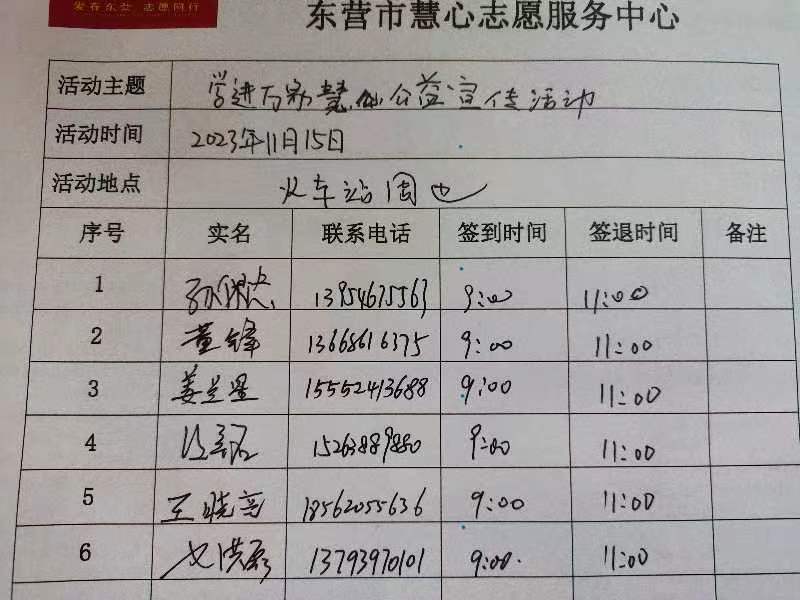 爱在东营 志愿同行
东营市慧心志愿服务中心
活动主题 学进万家慧心公益宣传活动
活动时间 2023年11月15日
活动地点 火车站周边
序号 实名 联系电话 签到时间 签退时间 备注
1 13954675563 9:00 11:00
2 董锋 13668616375 9:00 11:00
3 姜兰星 15552413688 9:00 11:00
4 15263889880 9:00 11:00
5 王晓亮 18562055636 9:00 11:00
6 13793970101 9:00 11:00